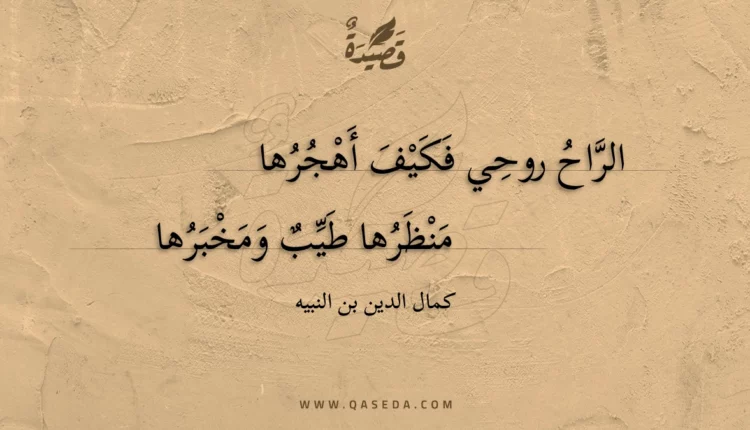 قَصِيدَةٌ
الرَّاحُ روحِي فَكَيْفَ أَهْجُرُها
مَنْظَرُها طَيِّبٌ وَمَخْبَرُها
كمال الدين بن النبيه
WWW.QASEDA.COM